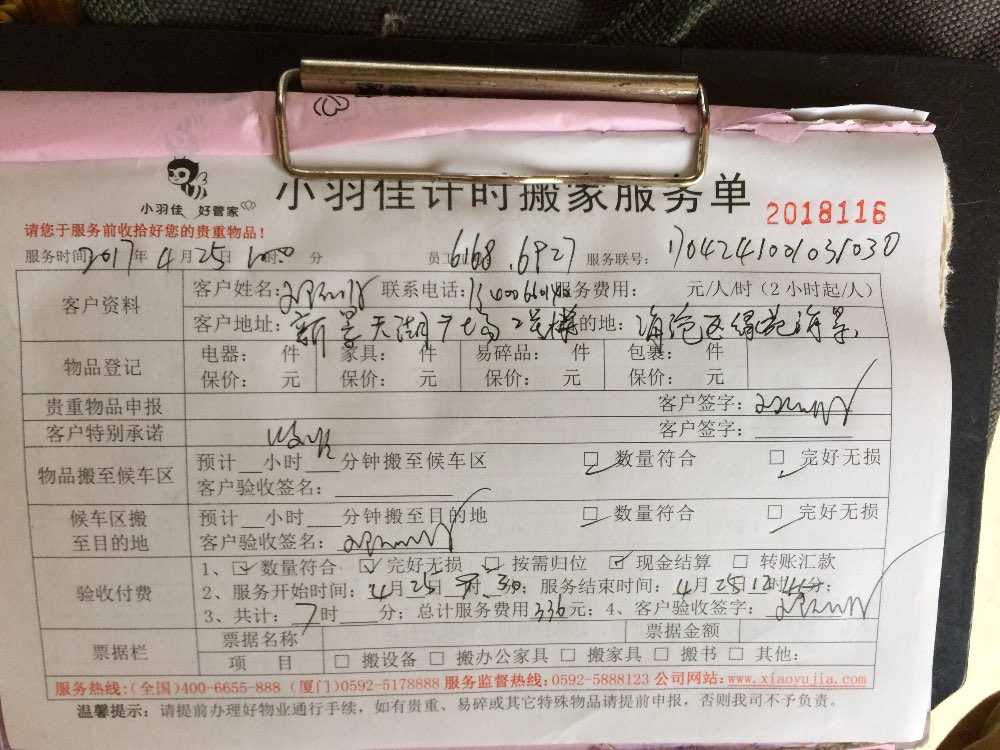 小羽佳 好管家
小羽佳计时搬家服务单
2018116
请您于服务前收拾好您的贵重物品！
服务时间 2017年4月25日 时 分 员工 6168.6927 服务联号：1704241001031030
客户资料
客户姓名： 联系电话： 服务费用： 元/人/时（2小时起/人）
客户地址：新景天湖广场2号楼 的地：海沧区绿苑海景
物品登记
电器： 件 家具： 件 易碎品： 件 包裹： 件
保价： 元 保价： 元 保价： 元 保价： 元
贵重物品申报 客户签字：
客户特别承诺 客户签字：
物品搬至候车区
预计 小时 分钟搬至候车区 □ 数量符合 □ 完好无损
客户验收签名：
候车区搬至目的地
预计 小时 分钟搬至目的地 □ 数量符合 □ 完好无损
客户验收签名：
验收付费
1、☑ 数量符合 ☑ 完好无损 □ 按需归位 ☑ 现金结算 □ 转账汇款
2、服务开始时间：4月25日 时30分；服务结束时间：4月25日12时 分；
3、共计：7时 分；总计服务费用336元；4、客户验收签字：
票据栏
票据名称 票据金额
项 目 □ 搬设备 □ 搬办公家具 □ 搬家具 □ 搬书 □ 其他：
服务热线：(全国)400-6655-888 (厦门)0592-5178888 服务监督热线：0592-5888123 公司网站：www.xiaoyujia.com
温馨提示：请提前办理好物业通行手续，如有贵重、易碎或其它特殊物品请提前申报，否则我司不予负责。